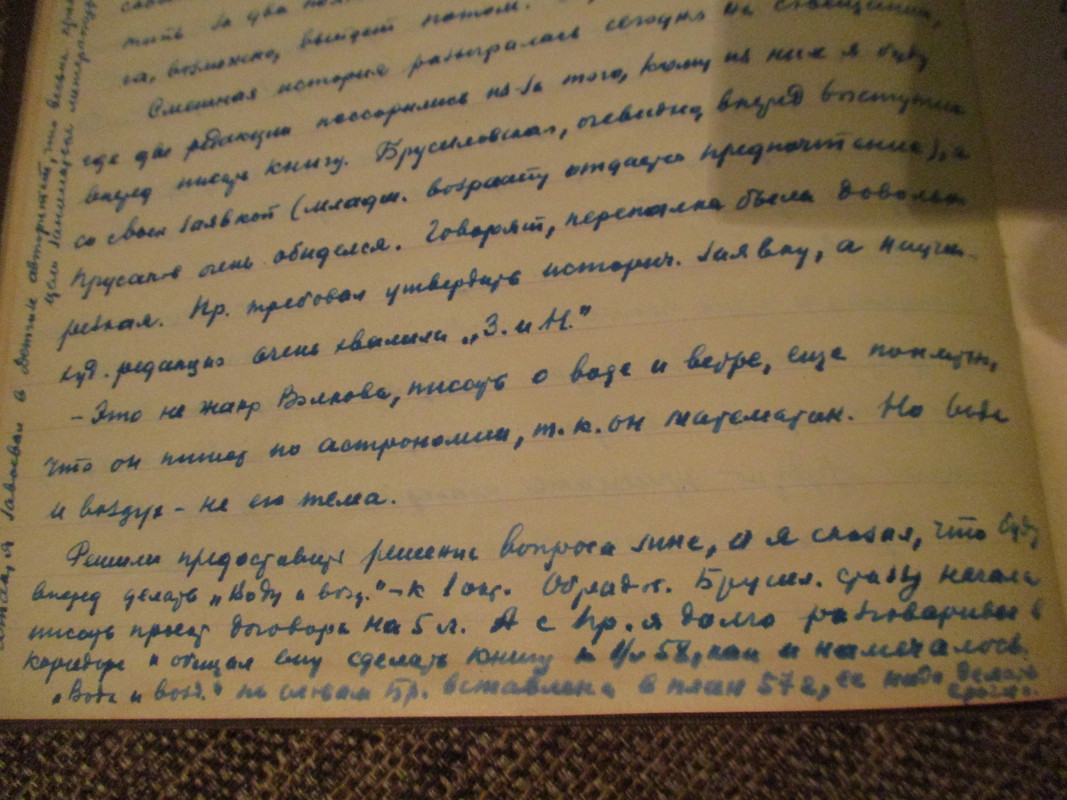 жить за два
га, возможно, выйдет потом.
Смешная история разыгралась сегодня на совещании,
где две редакции поссорились из-за того, кому из них я буду
вперед писать книгу. Брусиловская, очевидно, вперед выступила
со своей заявкой (младш. возрасту отдается предпочтение), а
Прусаков очень обиделся. Говорят, перепалка была довольно
резкая. Пр. требовал утвердить историч. заявку, а научн.-
худ. редакция очень хвалили „З. и Н."
- Это не жанр Волкова, писать о воде и ветре, еще понятно,
что он пишет по астрономии, т.к. он математик. Но вода
и воздух - не его тема.
Решили предоставить решение вопроса мне, и я сказал, что буду
вперед делать „Воду и возд." - к 1 окт. Обрадов. Брусил. сразу начала
писать проект договора на 5 л. А с Пр. я долго разговаривал в
коридоре и обещал ему сделать книгу к 58, как и намечалось.
„Вода и возд." по словам Бр. вставлена в план 57 г., ее надо делать
срочно.